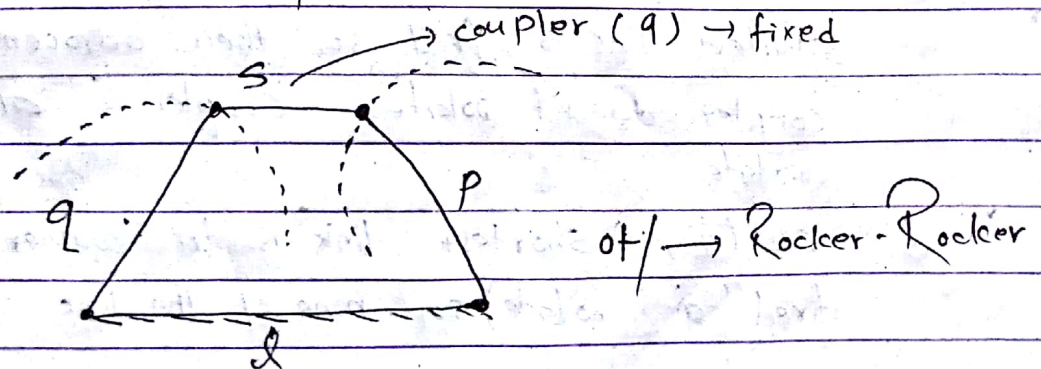 coupler (q) → fixed
s
q
p
o/p → Rocker - Rocker
l